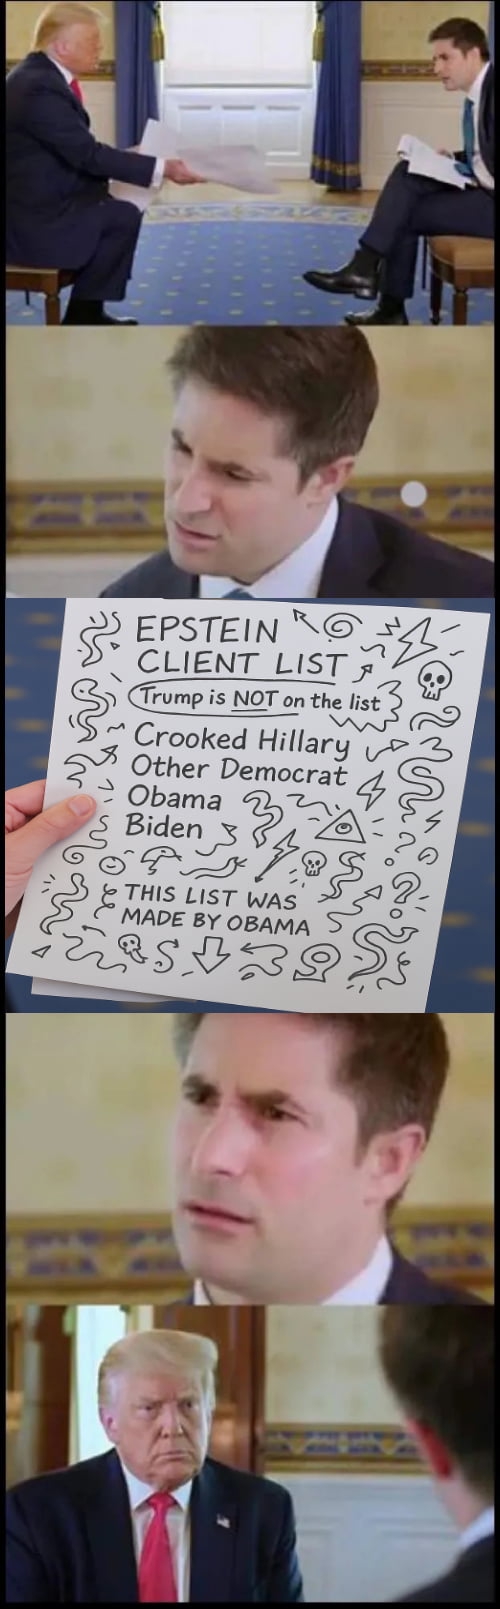 EPSTEIN
CLIENT LIST
Trump is NOT on the list
Crooked Hillary
Other Democrat
Obama
Biden
THIS LIST WAS
MADE BY OBAMA